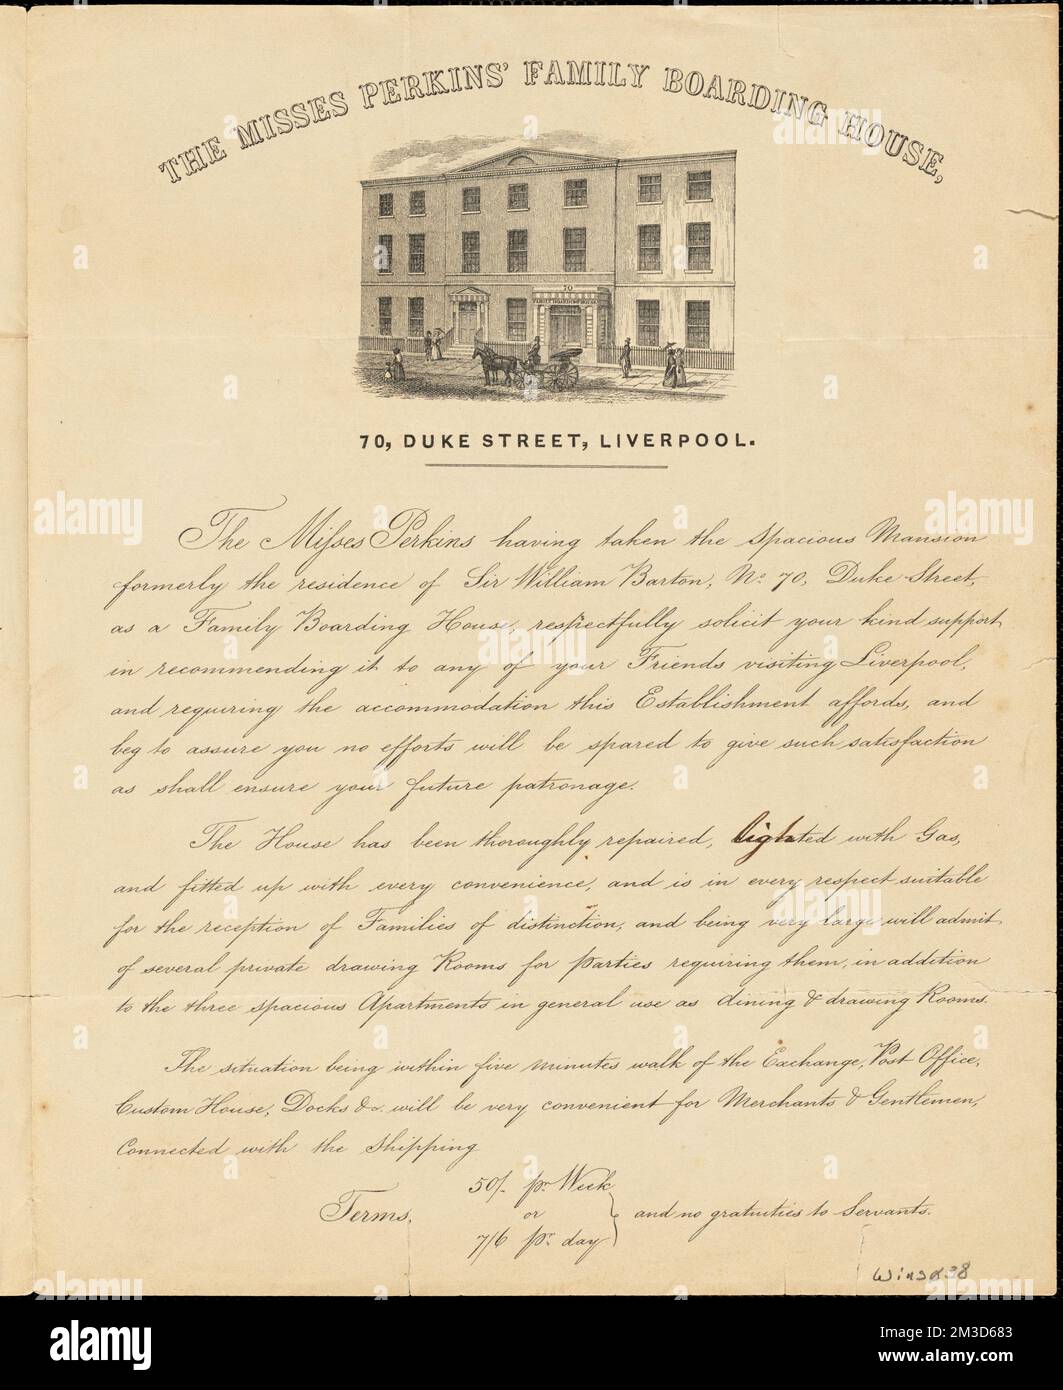 THE MISSES PERKINS' FAMILY BOARDING HOUSE,
70
FAMILY BOARDING HOUSE
70, DUKE STREET, LIVERPOOL.
The Miſses Perkins having taken the spacious Mansion
formerly the residence of Sir William Barton, No. 70, Duke Street,
as a Family Boarding House, respectfully solicit your kind support
in recommending it to any of your Friends visiting Liverpool,
and requiring the accommodation this Establishment affords, and
beg to assure you no efforts will be spared to give such satisfaction
as shall ensure your future patronage.
The House has been thoroughly repaired, lighted with Gas,
and fitted up with every convenience, and is in every respect suitable
for the reception of Families of distinction, and being very large will admit
of several private drawing Rooms for parties requiring them, in addition
to the three spacious Apartments in general use as dining & drawing Rooms.
The situation being within five minutes walk of the Exchange, Post Office,
Custom House, Docks &c. will be very convenient for Merchants & Gentlemen,
Connected with the Shipping
50/- pr. Week
Terms, or and no gratuities to Servants.
7/6 pr. day
alamy
Image ID: 2M3D683
www.alamy.com